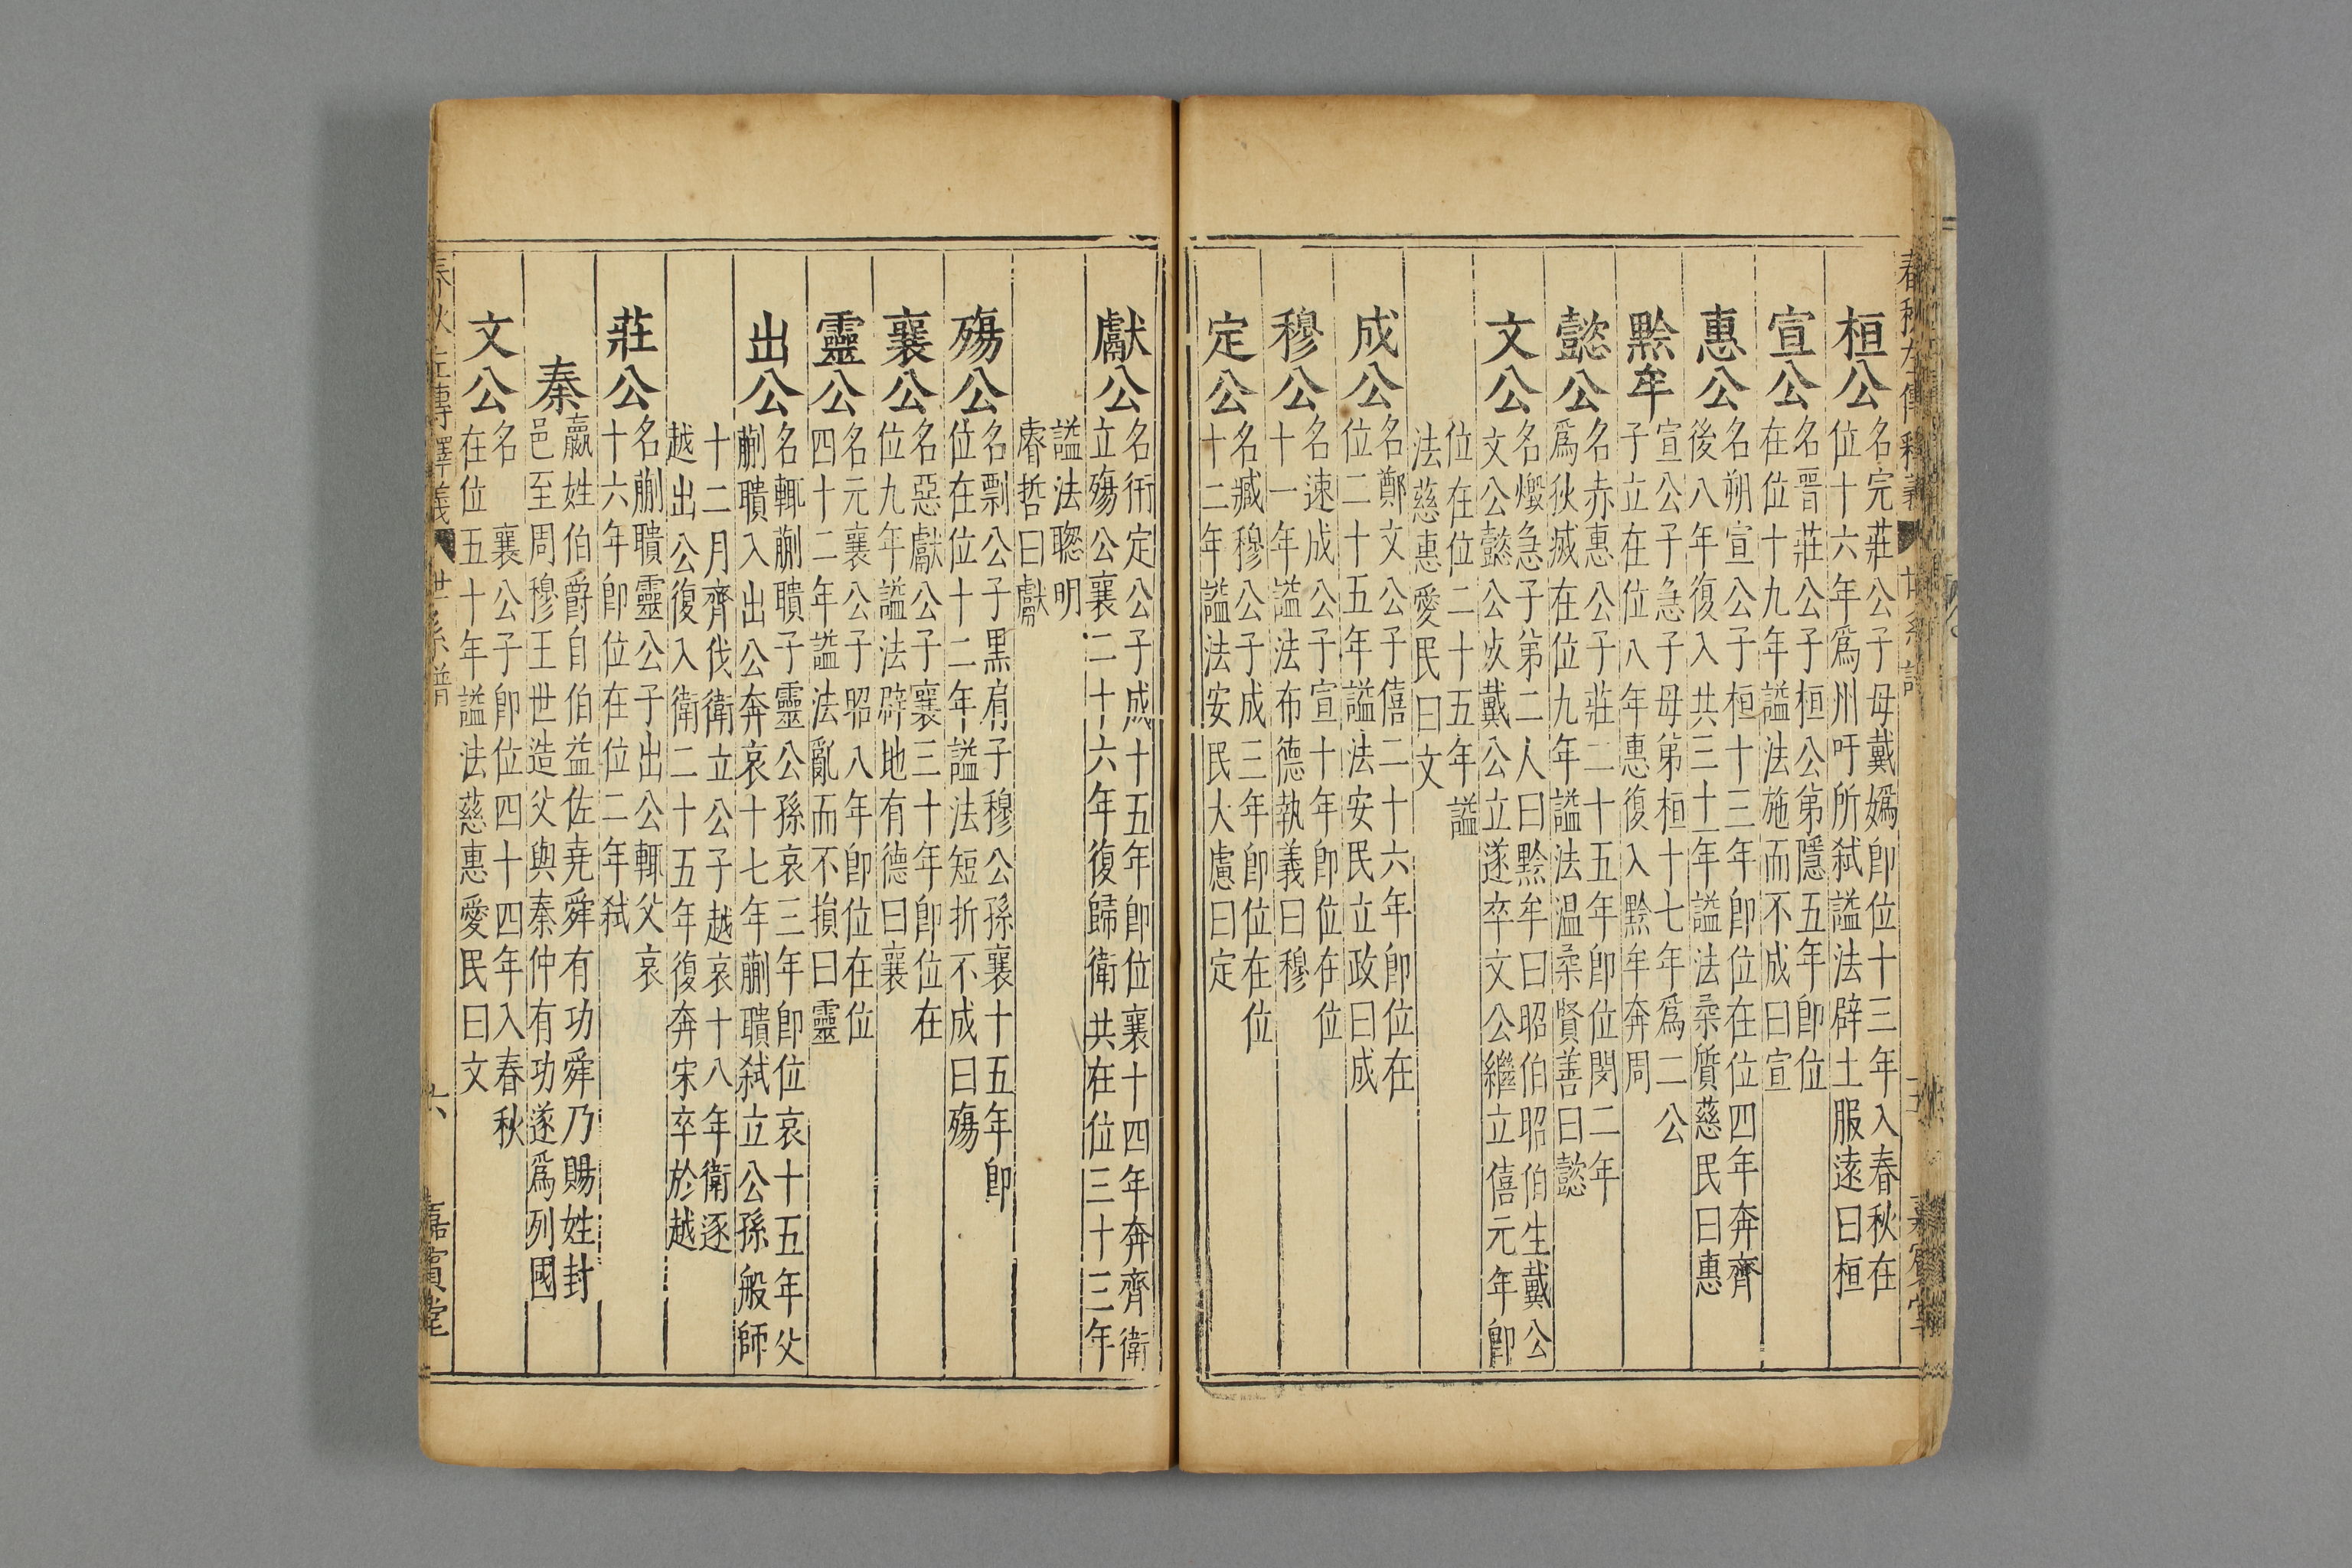 春秋左傳釋義 世系譜 五 嘉賓堂
桓公 名完莊公子母戴嬀卽位十三年入春秋在
位十六年爲州吁所弑謚法辟土服遠曰桓
宣公 名晋莊公子桓公第隱五年卽位
在位十九年謚法施而不成曰宣
惠公 名朔宣公子桓十三年卽位在位四年奔齊
後八年復入共三十一年謚法柔質慈民曰惠
黔牟 宣公子急子母第桓十七年爲二公
子立在位八年惠復入黔牟奔周
懿公 名赤惠公子莊二十五年卽位閔二年
爲狄滅在位九年謚法温柔賢善曰懿
文公 名燬急子第二人曰黔牟曰昭伯昭伯生戴公
文公懿公決戴公立遂卒文公繼立僖元年卽
位在位二十五年謚
法慈惠愛民曰文
成公 名鄭文公子僖二十六年卽位在
位二十五年謚法安民立政曰成
穆公 名速成公子宣十年卽位在位
十一年謚法布德執義曰穆
定公 名臧穆公子成三年卽位在位
十二年謚法安民大慮曰定
獻公 名衎定公子成十五年卽位襄十四年奔齊衛
立殤公襄二十六年復歸衛共在位三十三年
謚法聰明
睿哲曰獻
殤公 名剽公子黑肩子穆公孫襄十五年卽
位在位十二年謚法短折不成曰殤
襄公 名惡獻公子襄三十年卽位在
位九年謚法辟地有德曰襄
靈公 名元襄公子昭八年卽位在位
四十二年謚法亂而不損曰靈
出公 名輒蒯聵子靈公孫哀三年卽位哀十五年父
蒯聵入出公奔哀十七年蒯聵弑立公孫般師
十二月齊伐衛立公子越哀十八年衛逐
越出公復入衛二十五年復奔宋卒於越
莊公 名蒯聵靈公子出公輒父哀
十六年卽位在位二年弑
秦 嬴姓伯爵自伯益佐堯舜有功舜乃賜姓封
邑至周穆王世造父與秦仲有功遂爲列國
文公 名 襄公子卽位四十四年入春秋
在位五十年謚法慈惠愛民曰文
春秋左傳釋義 世系譜 六 嘉賓堂